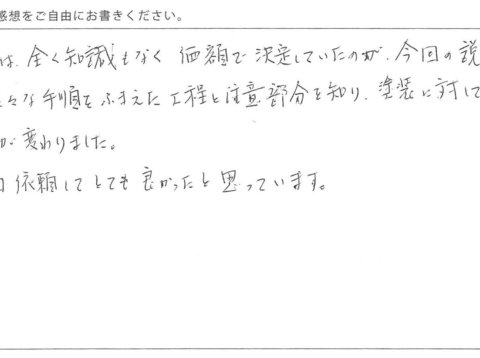 感想をご自由にお書きください。
は、全く知識もなく価額で決定していたのが、今回の説
々な手順をふまえた工程と注意部分を知り、塗装に対して
が変わりました。
依頼してとても良かったと思っています。